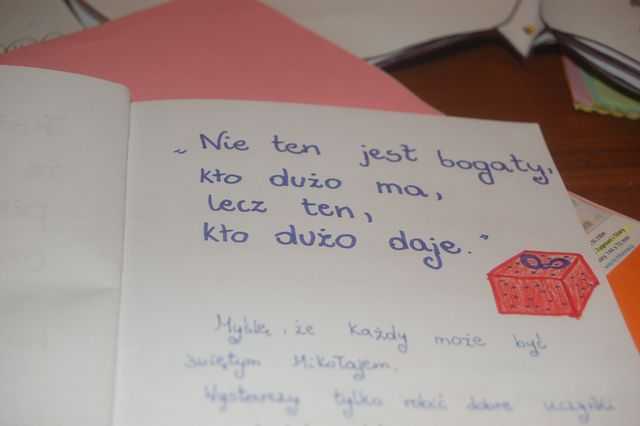 „Nie ten jest bogaty,
kto dużo ma,
lecz ten,
kto dużo daje."
Myślę, że każdy może być
świętym Mikołajem.
Wystarczy tylko robić dobre uczynki